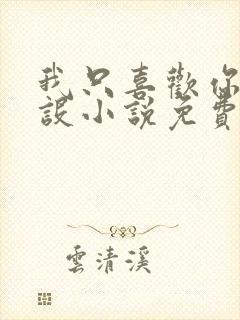 我只喜歡你
設小說免費
雲清溪